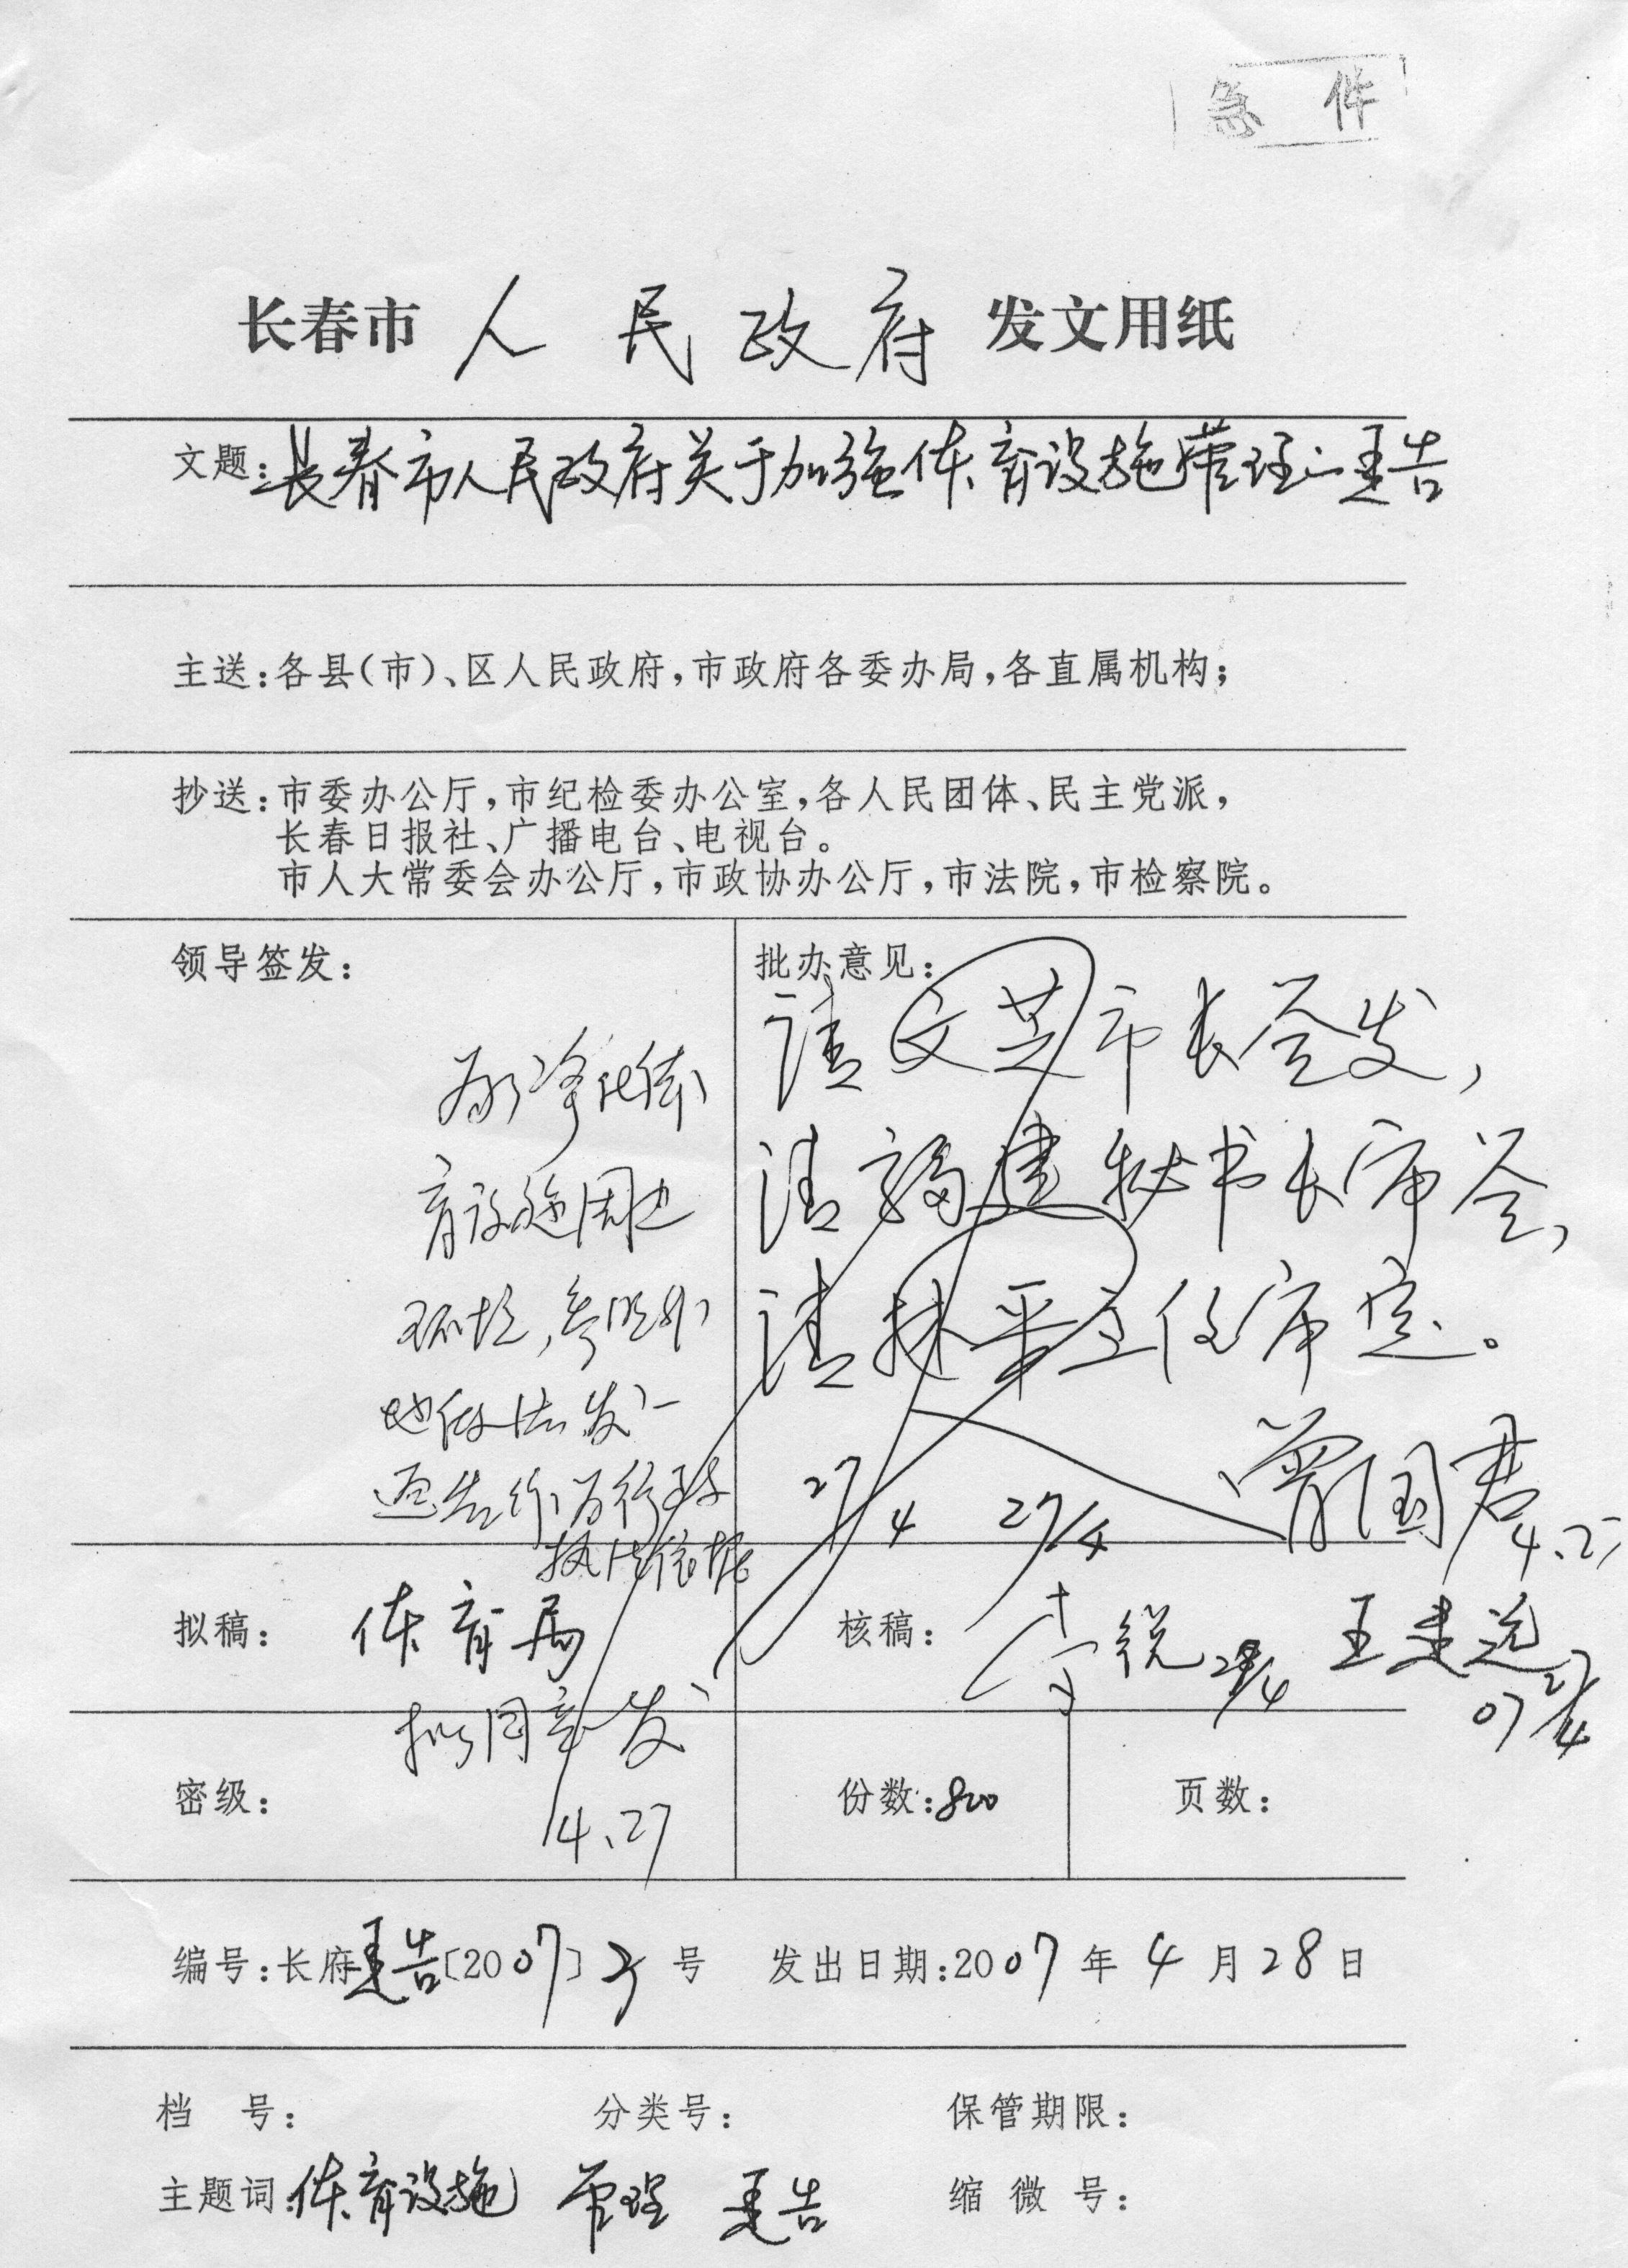 急 件
长春市 人 民 政 府 发文用纸
文题:长春市人民政府关于加强体育设施管理的通告
主送:各县(市)、区人民政府,市政府各委办局,各直属机构;
抄送:市委办公厅,市纪检委办公室,各人民团体、民主党派,
长春日报社、广播电台、电视台。
市人大常委会办公厅,市政协办公厅,市法院,市检察院。
领导签发:
为净化体
育设施周边
环境,参照外
地做法,发一
通告作为行政
执法依据
拟同意发
4.27
批办意见:
请文芝市长签发,
请福建秘书长审签,
请林平主任审定。
27/4 27/4
曾国君
拟稿: 体育局
核稿: 李锐 28/4 王建远
07 27/4
密级:
份数:800
页数:
编号:长府通告〔2007〕2号 发出日期:2007年4月28日
档 号: 分类号: 保管期限:
主题词:体育设施 管理 通告 缩微号: